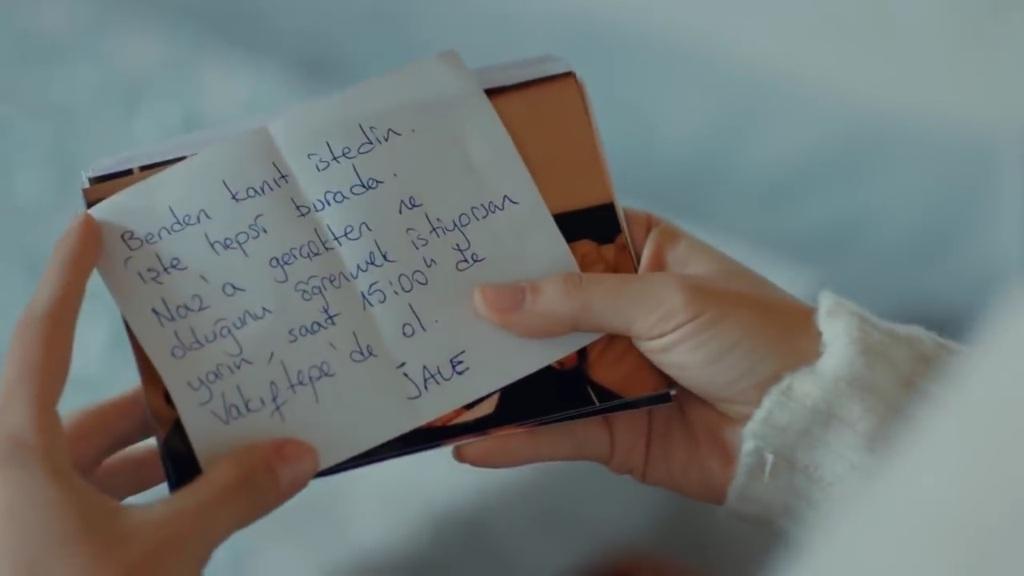 Benden kanıt istedin.
İşte hepsi burada.
Naz'a gerçekten ne
olduğunu öğrenmek istiyorsan
yarın, saat 15:00'' de
Vakıftepe'de ol.
JALE